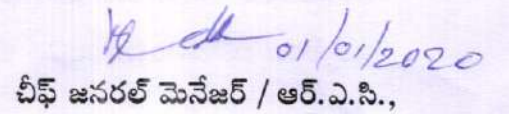 01/01/2020
చీఫ్ జనరల్ మెనేజర్ / ఆర్.ఎ.సి.,